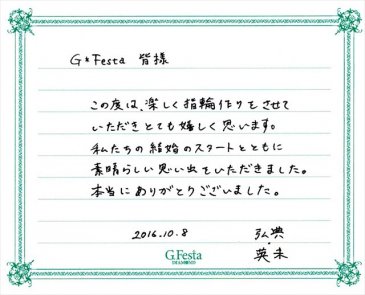 G*Festa 皆様
この度は、楽しく指輪作りをさせて
いただきとても嬉しく思います。
私たちの結婚のスタートとともに
素晴らしい思い出をいただきました。
本当にありがとうございました。
2016.10.8 弘典
英未
G.Festa
DIAMOND